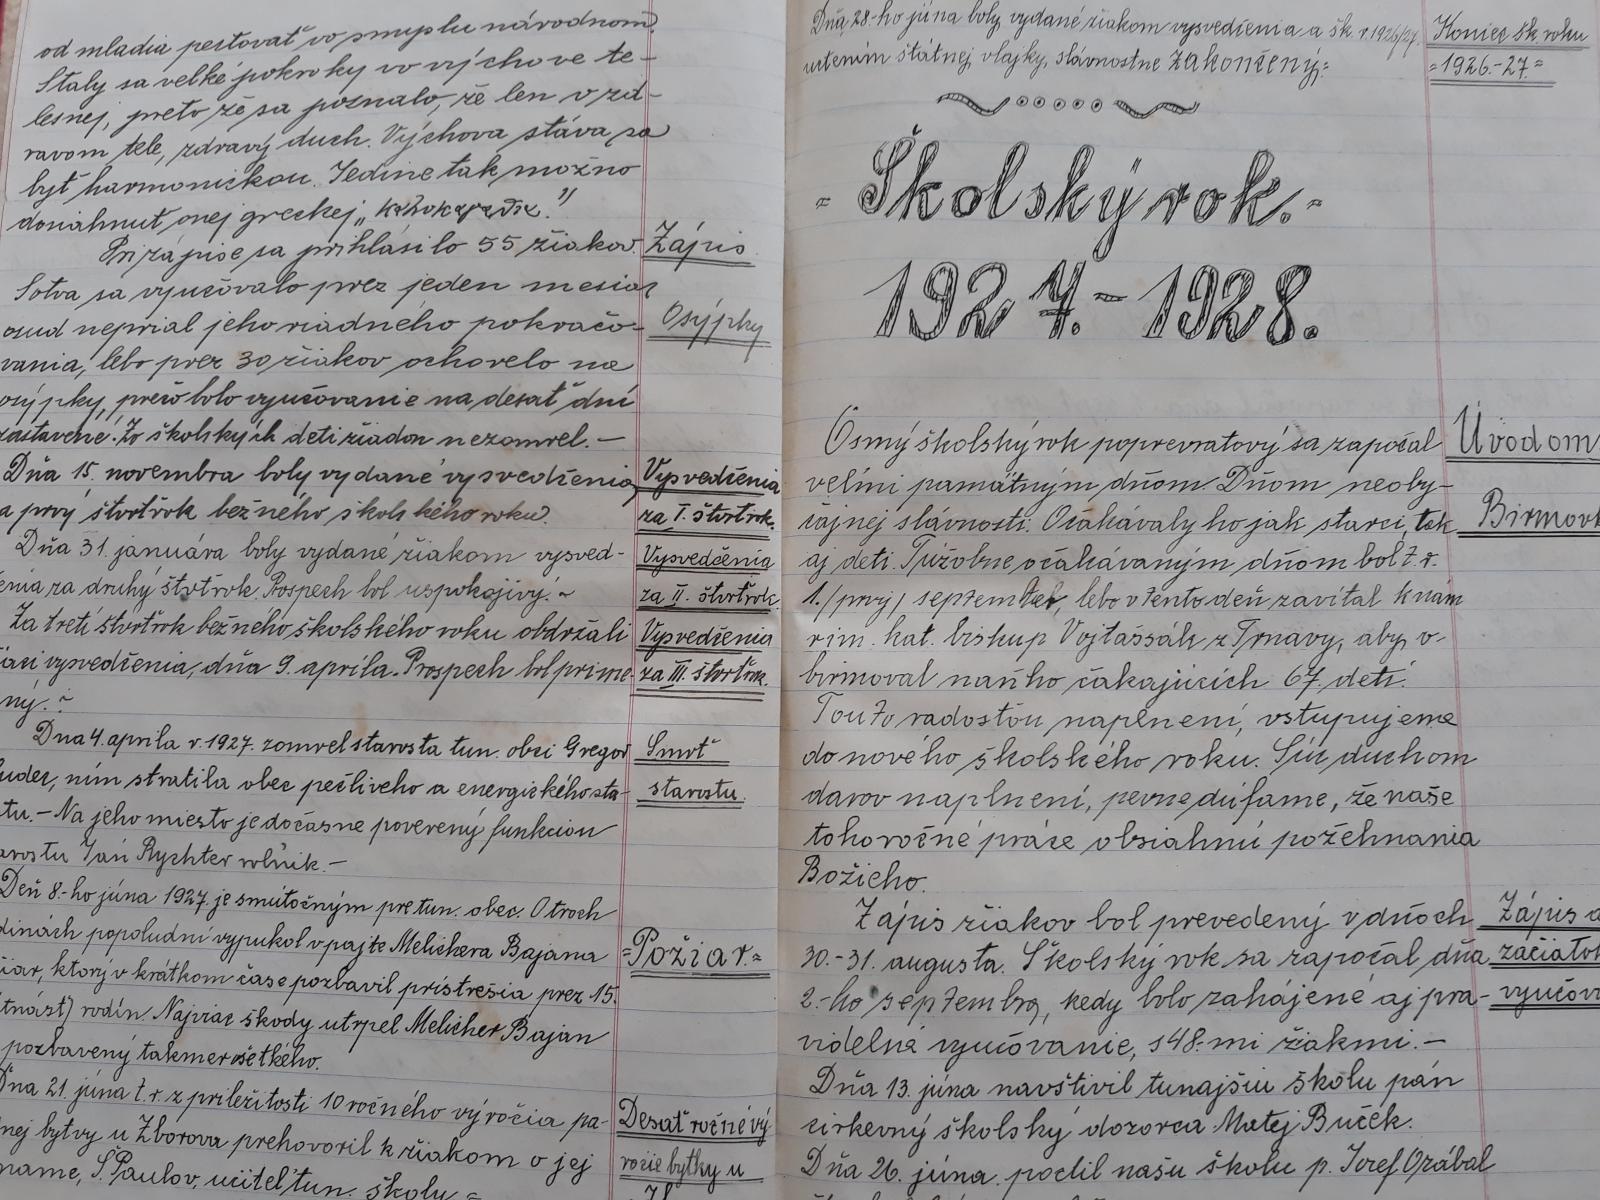 od mladia pestovať vo smyslu národnom.
Staly sa velké pokroky vo výchove te-
lesnej, preto že sa poznalo, že len v zd-
ravom tele, zdravý duch. Výchova stáva sa
byť harmonickou. Jedine tak možno
dosiahnuť onej greckej „
Pri zápise sa prihlásilo 55 žiakov.
Zápis
Sotva sa vyučovalo prez jeden mesiac
osud neprial jeho riadného pokračo-
Osýpky
vania, lebo prez 30 žiakov ochorelo na
osýpky, prečo bolo vyučovanie na desať dní
zastavené. Zo školských detí žiadon nezomrel. —
Dňa 15. novembra boly vydané vysvedčenia
Vysvedčenia
a prvý štvrťrok bežného školského roku.
za I. štvrťrok.
Dňa 31. januára boly vydané žiakom vysved-
Vysvedčenia
čenia za druhý štvrťrok. Prospech bol uspokojivý. ~
za II. štvrťrok
Za tretí štvrťrok bežného školského roku obdržali
Vysvedčenia
žiaci vysvedčenia, dňa 9. apríla. Prospech bol prime-
za III. štvrťrok.
ný. ~
Dňa 4. apríla r. 1927. zomrel starosta tun. obci Gregor
Smrť
uder, ním stratila obec pečlivého a energického sta-
starostu.
tu. — Na jeho miesto je dočasne poverený funkciou
arostu Ján Rychter rolník. —
Deň 8.-ho júna 1927. je smutočným pre tun. obec. O troch
dinách popoludní vypukol v pajte Melichera Bajana
=Požiar.=
iar, ktorý v krátkom čase pozbavil prístrešia prez 15.
tnásť) rodín. Najviac škody utrpel Melicher Bajan
pozbavený takmer všetkého.
Dňa 21. júna t. r. z príležitosti 10 ročného výročia pa-
Desať ročné vý
nej bytvy u Zborova prehovoril k žiakom o jej
ročie bytky u
name, Š. Paulov, učiteľ tun. školy =
Zb
Dňa 28.-ho júna boly vydané žiakom vysvedčenia a šk. r. 1926/27.
Koniec šk. roku
uctením štátnej vlajky, slávnostne zakončený.=
=1926.-27.=
= Školský rok. =
1927. - 1928.
Osmý školský rok poprevratový sa započal
Úvodom
veľmi památným dňom. Dňom neoby-
čajnej slávnosti. Očakávaly ho jak starci, tak
Birmovk
aj deti. Túžobne očakávaným dňom bol t. r.
1. /prvý/ september, lebo v tento deň zavítal k nám
rim. kat. biskup Vojtaššák z Trnavy, aby v-
birmoval naňho čakajúcich 67. detí.
Touto radosťou naplnení, vstupujeme
do nového školského roku. Súc duchom
darov naplnení, pevne dúfame, že naše
tohoročné práce obsiahnú požehnania
Božieho.
Zápis žiakov bol prevedený v dňoch
Zápis a
30.-31. augusta. Školský rok sa započal dňa
začiatok
2.-ho septembra, kedy bolo zahájené aj pra-
vyučova
videlné vyučovanie, s 48.-mi žiakmi. —
Dňa 13. júna navštívil tunajšiu školu pán
cirkevný školský dozorca Matej Buček.
Dňa 26. júna poctil našu školu p. Jozef Ozábal